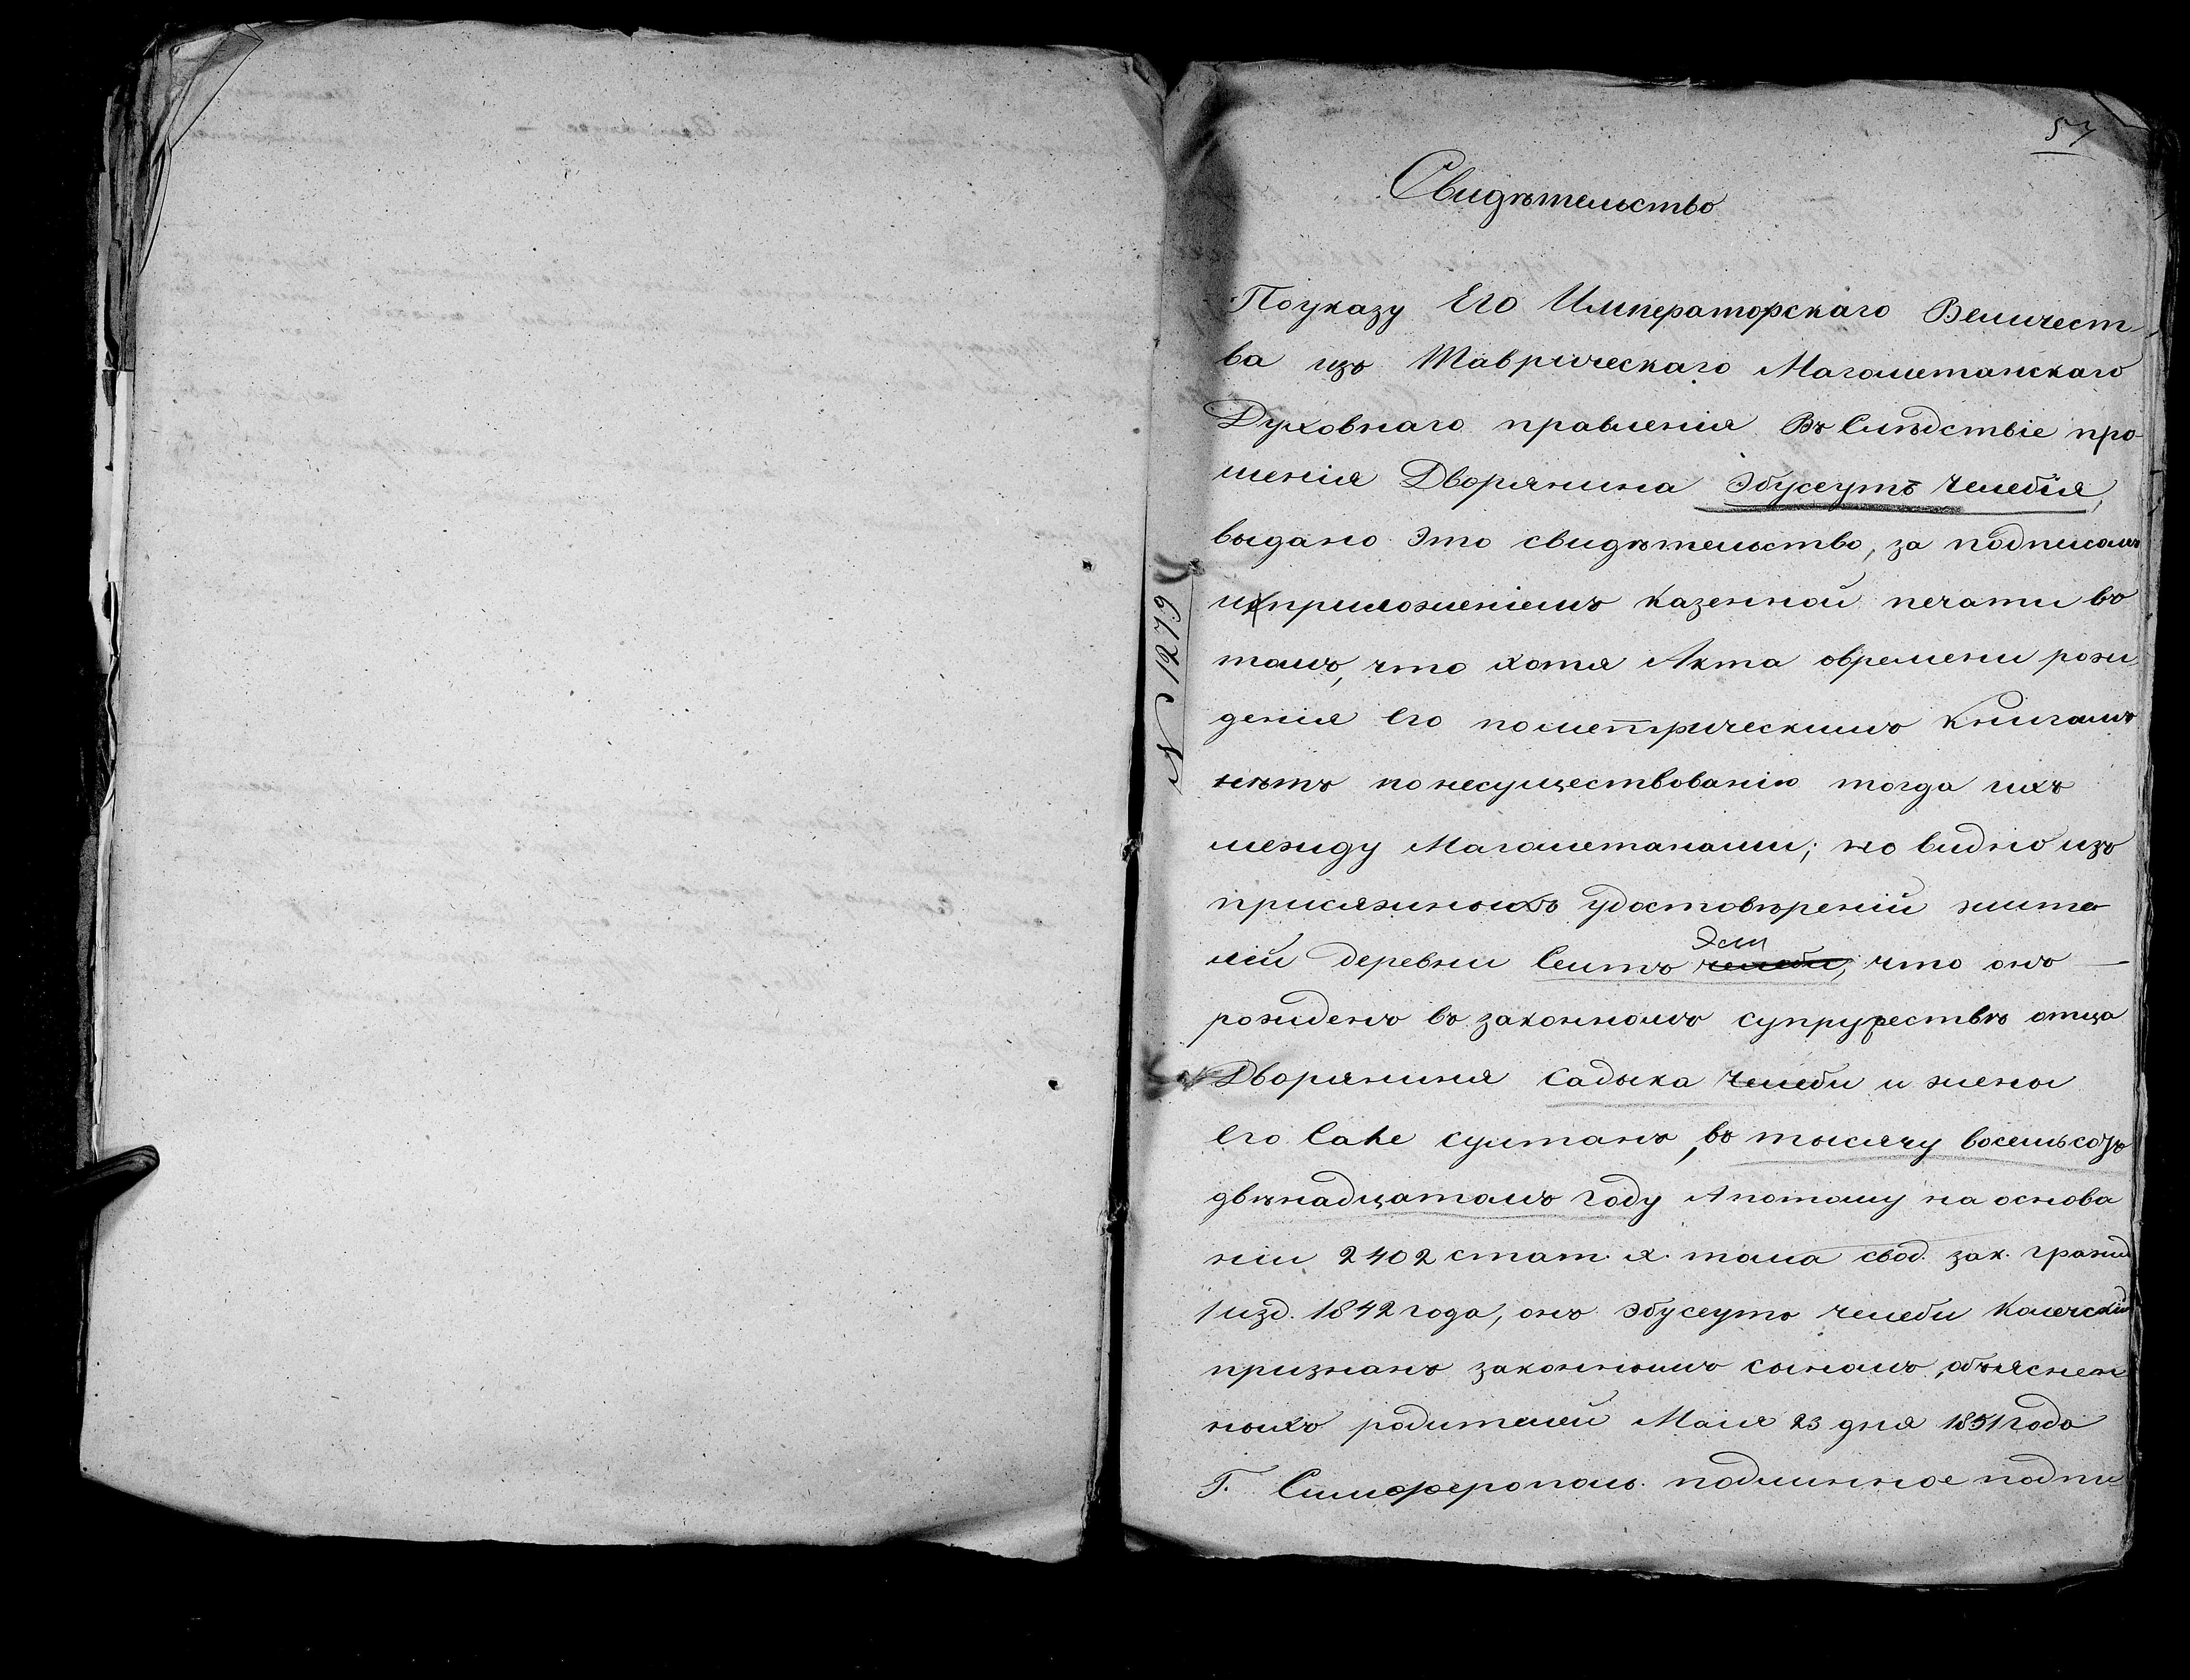 57
Свидѣтельство
N 1279
Поуказу Его Императорскаго Величест-
ва изъ Таврическаго Магометанскаго
Духовнаго правленія Въ Слѣдствіе про-
шенія Дворянина Эбусеутъ челебія,
выдано это свидѣтельство, за подписомъ
и приложеніемъ казенной печати въ
томъ, что хотя Акта овремени рож-
денія Его пометрическимъ книгамъ
нѣтъ понесуществованію тогда ихъ
между Магометанами; но видно изъ
присяжныхъ удостовѣреній жите-
Эли
лей деревни Сеитъ челеби, что онъ
рожденъ въ законномъ супружествѣ отца
Дворянина Садыка челеби и жены
Его Саhе султанъ, въ тысячу восемьсотъ
двѣнадцатомъ году Апотому на основа
ніи 2402 стат. х. тома свод. зак. гражд
1 изд. 1842 года, онъ Эбусеутъ челеби
признанъ законнымъ сыномъ, объяснен
ныхъ родителей Маія 23 дня 1851 года
Г. Симферополь. подлинное подпи-